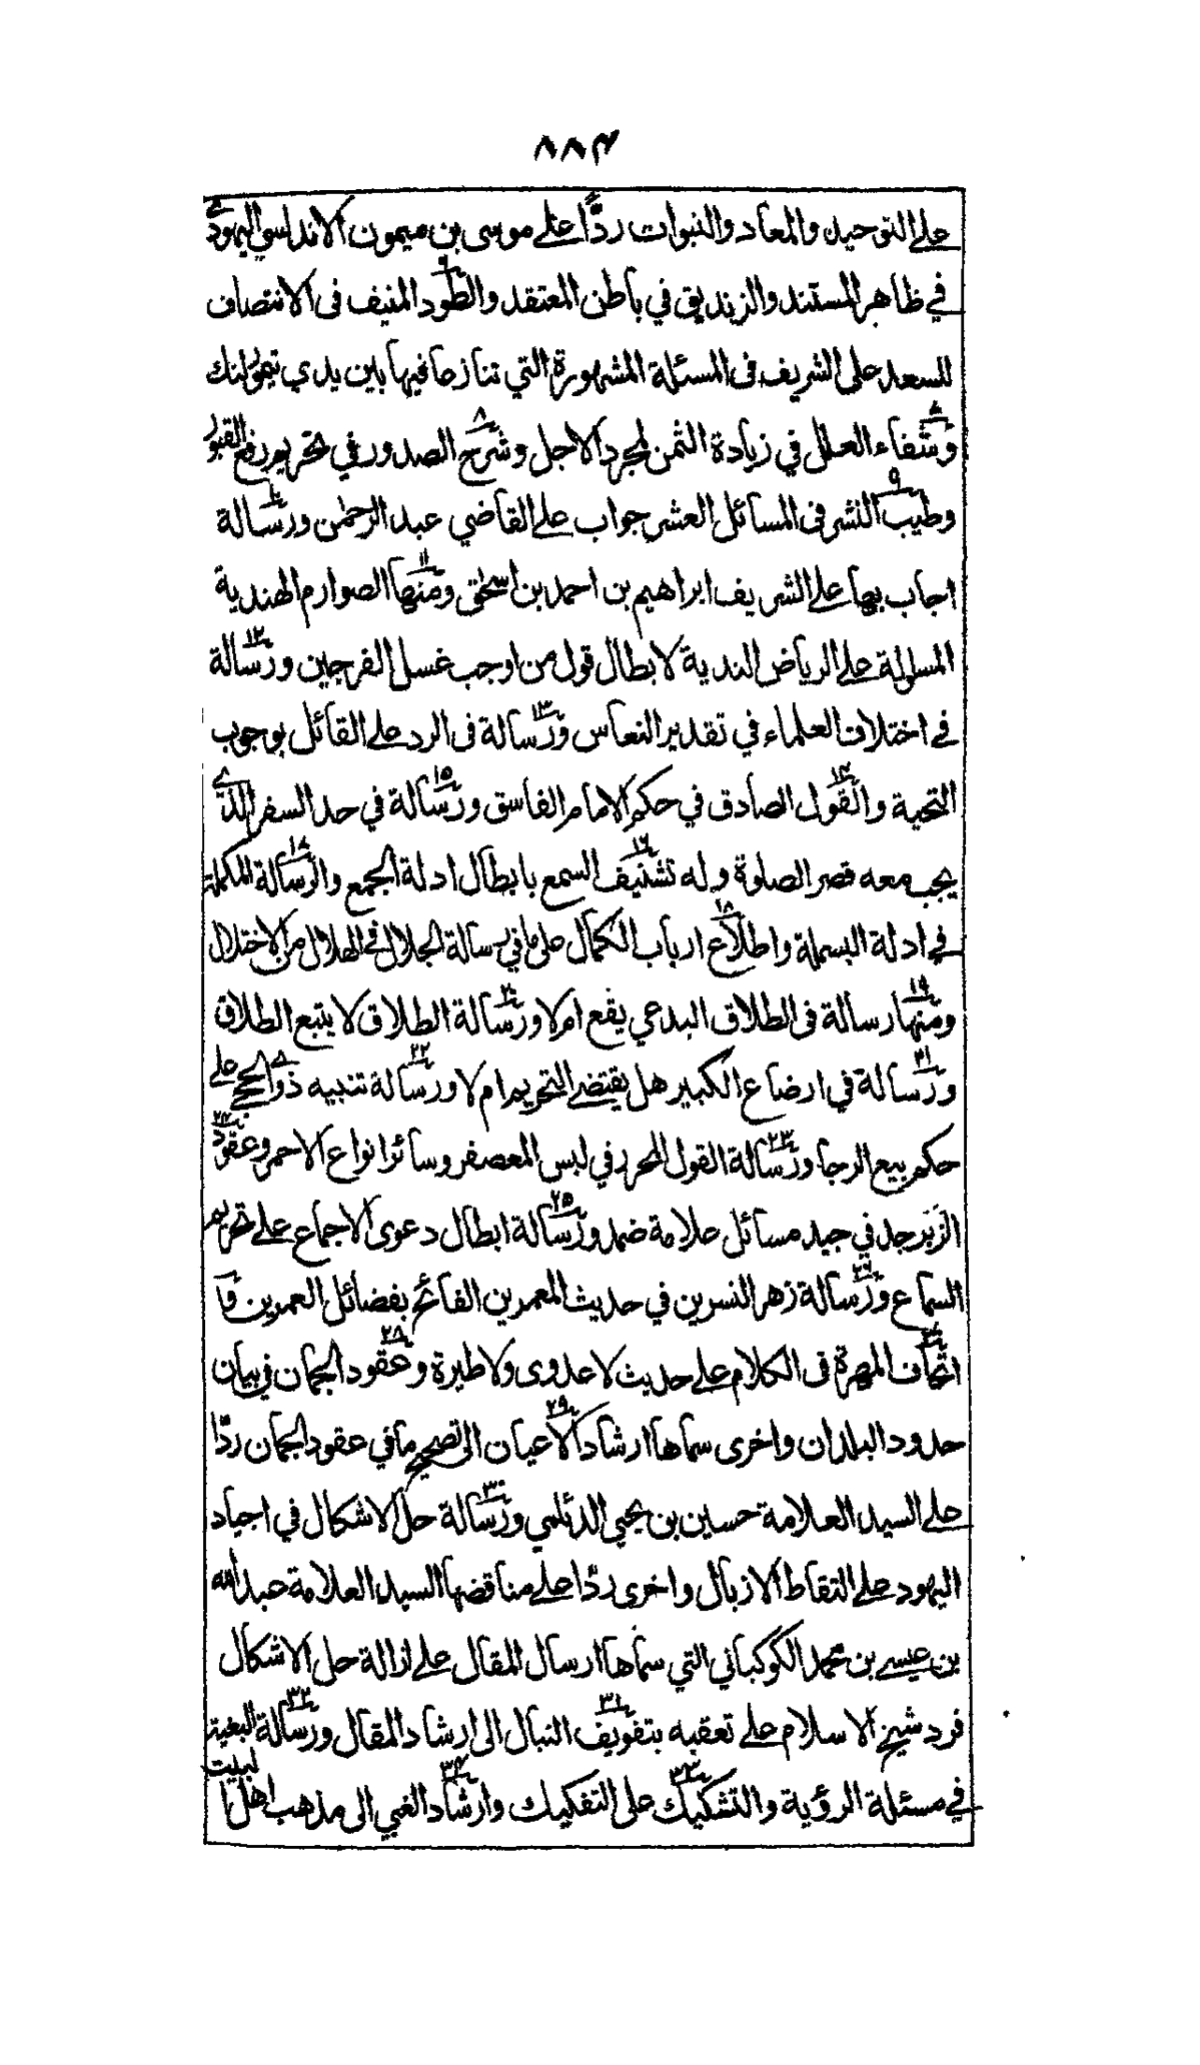 ٨٨٣
على التوحيد والمعاد والنبوات ردًّا على موسى بن ميمون الاندلسي اليهودي
في ظاهر المستند والزنديق في باطن المعتقد والطود المنيف فى الانتصاف
للسعد على الشريف فى المسئلة المشهورة التي تنازعا فيها بين يدي تيمورلنك
وشفاء العلل في زيادة الثمن لمجرد الاجل وشرح الصدور في تحريم رفع القبور
وطيب النشر فى المسائل العشر جواب على القاضي عبد الرحمن ورسالة
اجاب بها على الشريف ابراهيم بن احمد بن اسحٰق ومنها الصوارم الهندية
المسلولة على الرياض الندية لابطال قول من اوجب غسل الفرجين ورسالة
في اختلاف العلماء في تقدير النعاس ورسالة فى الرد على القائل بوجوب
التحية والقول الصادق في حكم الامام الفاسق ورسالة في حد السفر الذي
يجب معه قصر الصلوة وله تشنيف السمع بابطال ادلة الجمع والرسالة المكملة
في ادلة البسملة واطلاع ارباب الكمال على ما في رسالة الجلال في الهلال من الاختلال
ومنها رسالة فى الطلاق البدعي يقع ام لا ورسالة الطلاق لا يتبع الطلاق
ورسالة في ارضاع الكبير هل يقتضي التحريم ام لا ورسالة تنبيه ذوي الحجى على
حكم بيع الرجا ورسالة القول المحرر في لبس المعصفر وسائر انواع الاحمر وعقود
الزبرجد في جيد مسائل علامة ضمد ورسالة ابطال دعوى الاجماع على تحريم
السماع ورسالة زهر النسرين في حديث المعمرين الفائح بفضائل العمرين و
اتحاف المهرة فى الكلام على حديث لا عدوى ولا طيرة وعقود الجمان في بيان
حدود البلدان واخرى سماها ارشاد الاعيان الى تصحيح ما في عقود الجمان ردًّا
على السيد العلامة حسين بن يحيى الديلمي ورسالة حل الاشكال في اجبار
اليهود على التقاط الازبال واخرى ردًّا على مناقضها السيد العلامة عبد الله
بن عيسى بن محمد الكوكباني التي سماها ارسال المقال على ازالة حل الاشكال
فرد شيخ الاسلام على تعقبه بتفويق النبال الى ارشاد المقال ورسالة البغية
في مسئلة الرؤية والتشكيك على التفكيك وارشاد الغبي الى مذهب اهل البيت